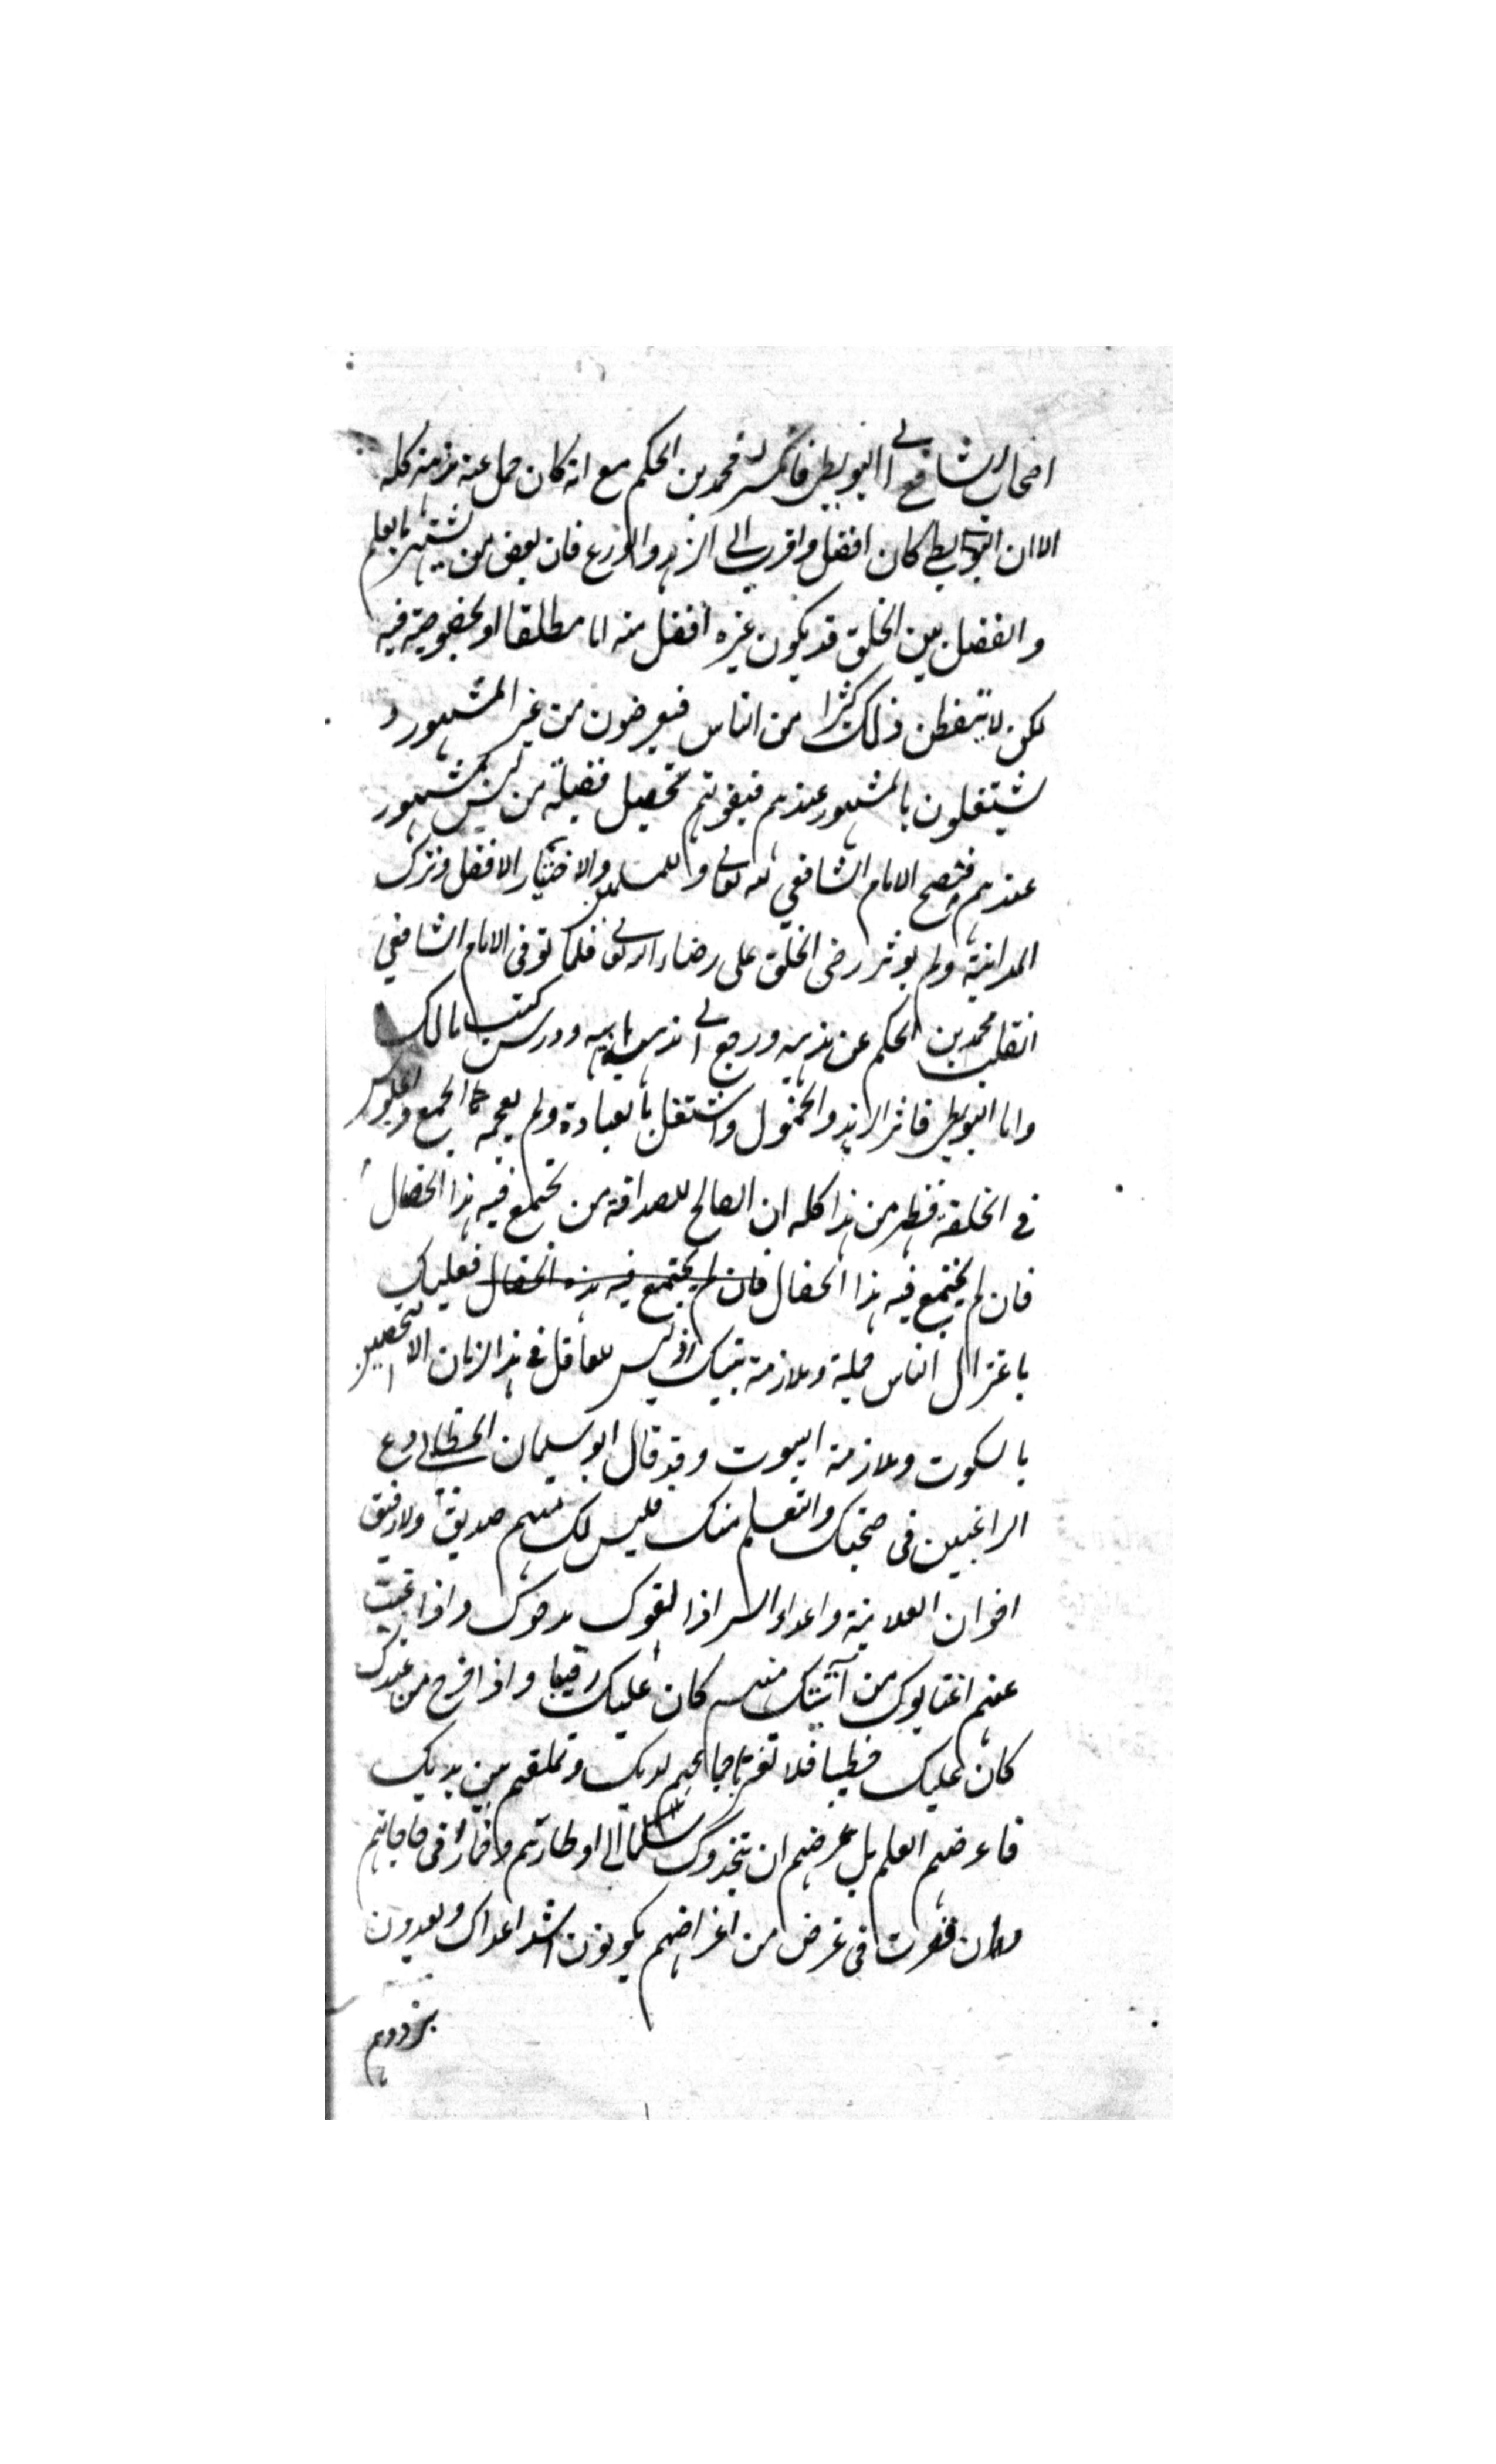 اصحاب الشافعي الى البويطي فانكسر له محمد بن الحكم مع انه كان حمل عنه مذهبه كله
الا ان البويطي كان افضل واقرب الى الزهد والورع فان بعض من يشتهر بالعلم
والفضل بين الخلق قد يكون غيره أفضل منه اما مطلقا او بخصوصية فيه
لكن لا يتفطن ذلك كثيرا من الناس فيعرضون من غير المشهور و
يشتغلون بالمشهور عندهم فيفوتهم تحصيل فضيلة من ليس بمشهور
عندهم فنصح الامام الشافعي لله تعالى وللمسلمين والاختيار الافضل وترك
المداهنة ولم يوثر رضى الخلق على رضاء الله تعالى فلما توفى الامام الشافعي
انقلب محمد بن الحكم عن مذهبه ورجع الى مذهب ابيه ودرس كتب مالك
واما البويطي فاثر الزهد والخمول واشتغل بالعبادة ولم يعجبه الجمع والجلوس
في الحلقة فظهر من هذا كله ان الصالح للصداقة من تجتمع فيه هذا الخصال
فان لم يجتمع فيه هذا الخصال فان لم يجتمع فيه هذه الخصال فعليك
باعتزال الناس جملة وملازمة بيتك اذ ليس للعاقل في هذا الزمان الا التحصين
بالسكوت وملازمة البيوت وقد قال ابو سليمان الخطابي دع
الراغبين في صحبتك والتعلم منك فليس لك منهم صديق ولا رفيق
اخوان العلانية واعداء السر اذا لقوك مدحوك واذا غبت
عنهم اغتابوك من آتيتك منهم كان عليك رقيبا واذا خرج من عندك
كان عليك خطيبا فلا تغتر باجتماعهم لديك وتملقهم بين يديك
فما غرضهم العلم بل غرضهم ان يتخذوك سلما الى اوطارهم وحمارا في حاجاتهم
وان قصرت في غرض من اغراضهم يكونون اشد اعداك ويعدون
ترددهم